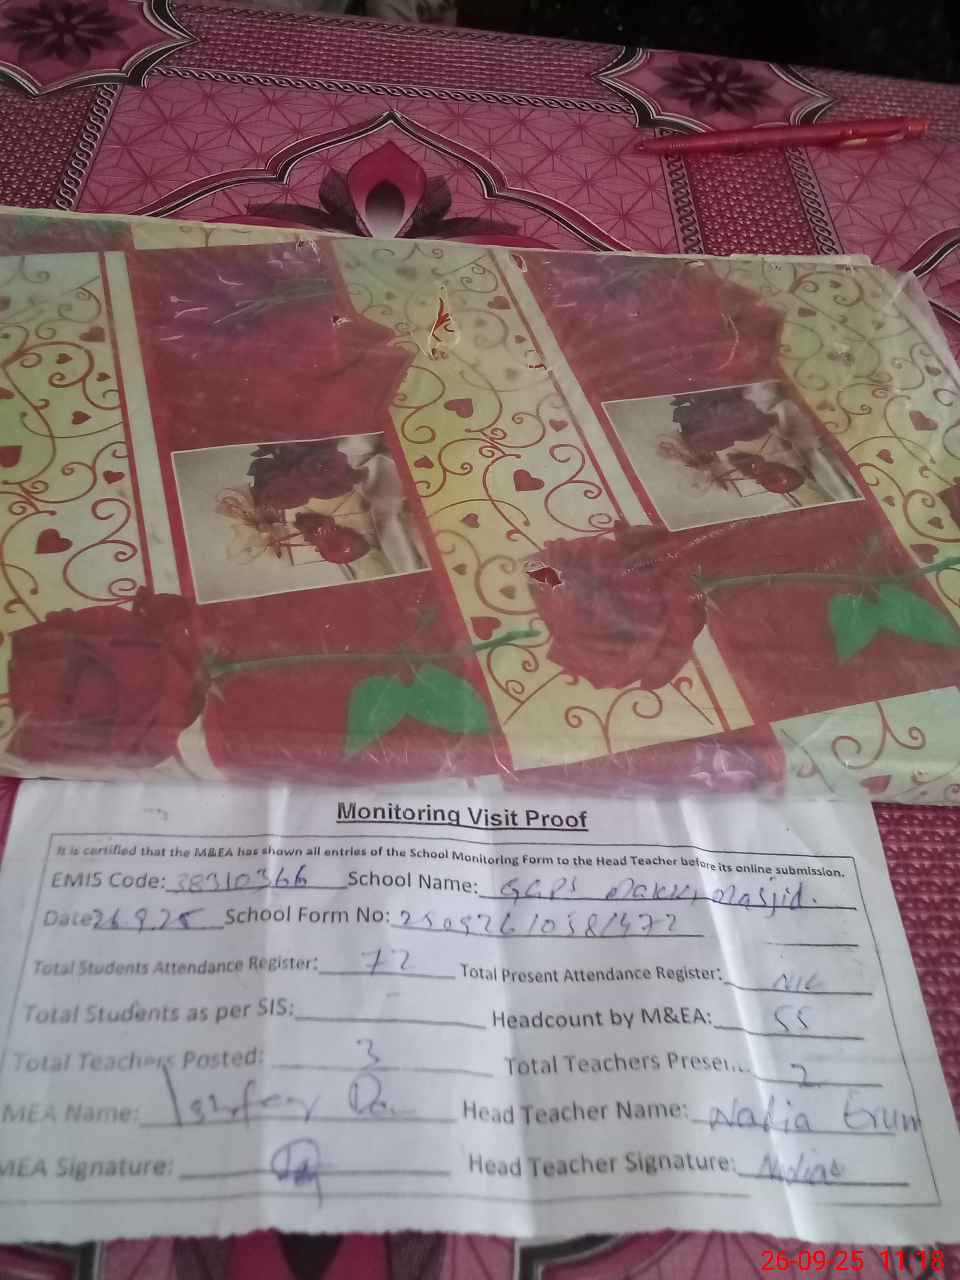 Monitoring Visit Proof
It is certified that the M&EA has shown all entries of the School Monitoring Form to the Head Teacher before its online submission.
EMIS Code: 38310366 School Name: GGPS Makki Masjid.
Date 26.9.25 School Form No:
Total Students Attendance Register: 72 Total Present Attendance Register: Nil
Total Students as per SIS: - Headcount by M&EA: 55
Total Teachers Posted: 3 Total Teachers Presen... 2
MEA Name: Head Teacher Name: Nadia Erum
MEA Signature: Head Teacher Signature: Nadia
26-09-25 11:18